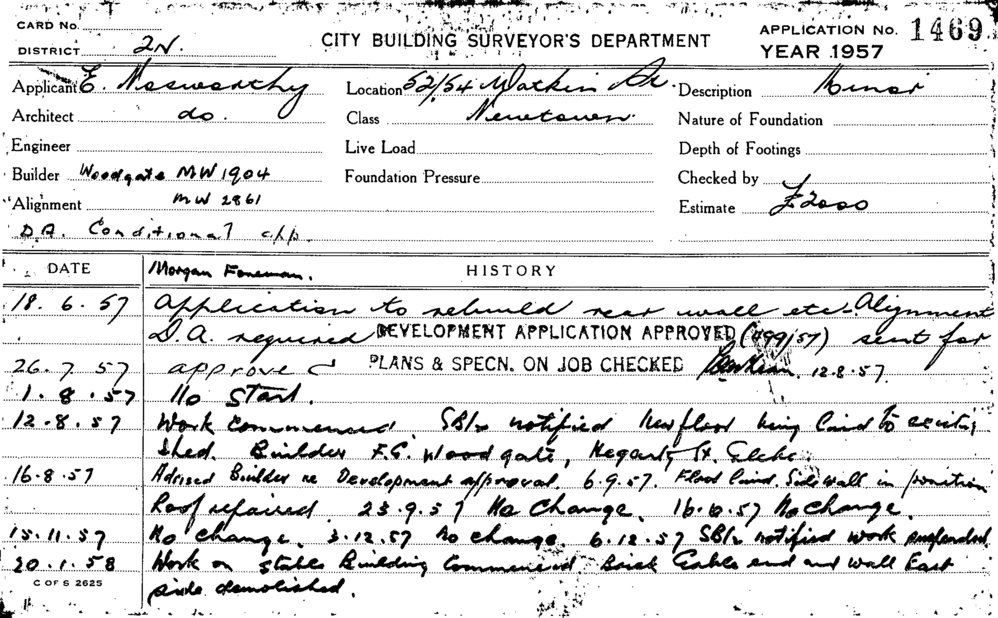 CARD No.
DISTRICT 2N.
CITY BUILDING SURVEYOR'S DEPARTMENT
APPLICATION No. 1469
YEAR 1957
Applicant E. Nosworthy Location 52/54 Watkin St. Description Minor
Architect do. Class Newtown. Nature of Foundation
Engineer Live Load Depth of Footings
Builder Woodgate MW 1904 Foundation Pressure Checked by
Alignment MW 2861 Estimate £2000
D.A. Conditional app.
DATE Morgan Foreman. HISTORY
18. 6. 57 Application to rebuild rear wall etc - Alignment
D.A. required DEVELOPMENT APPLICATION APPROVED (499/57) sent for
26. 7. 57 approved PLANS & SPECN. ON JOB CHECKED 12.8.57.
1. 8. 57 No start.
12.8.57 Work commenced. SBI notified New floor being laid to existing
shed. Builder F.G. Woodgate, Hegarty St. Glebe.
16.8.57 Advised Builder re Development approval. 6.9.57. Floor laid. Side wall in position
Roof repaired. 23.9.57 No Change. 16.10.57 No change.
15.11.57 No change. 3.12.57 No change. 6.12.57 SBI notified work suspended
20.1.58 Work on stable Building Commenced Brick Gable end and wall East
side demolished.
C OF S 2625